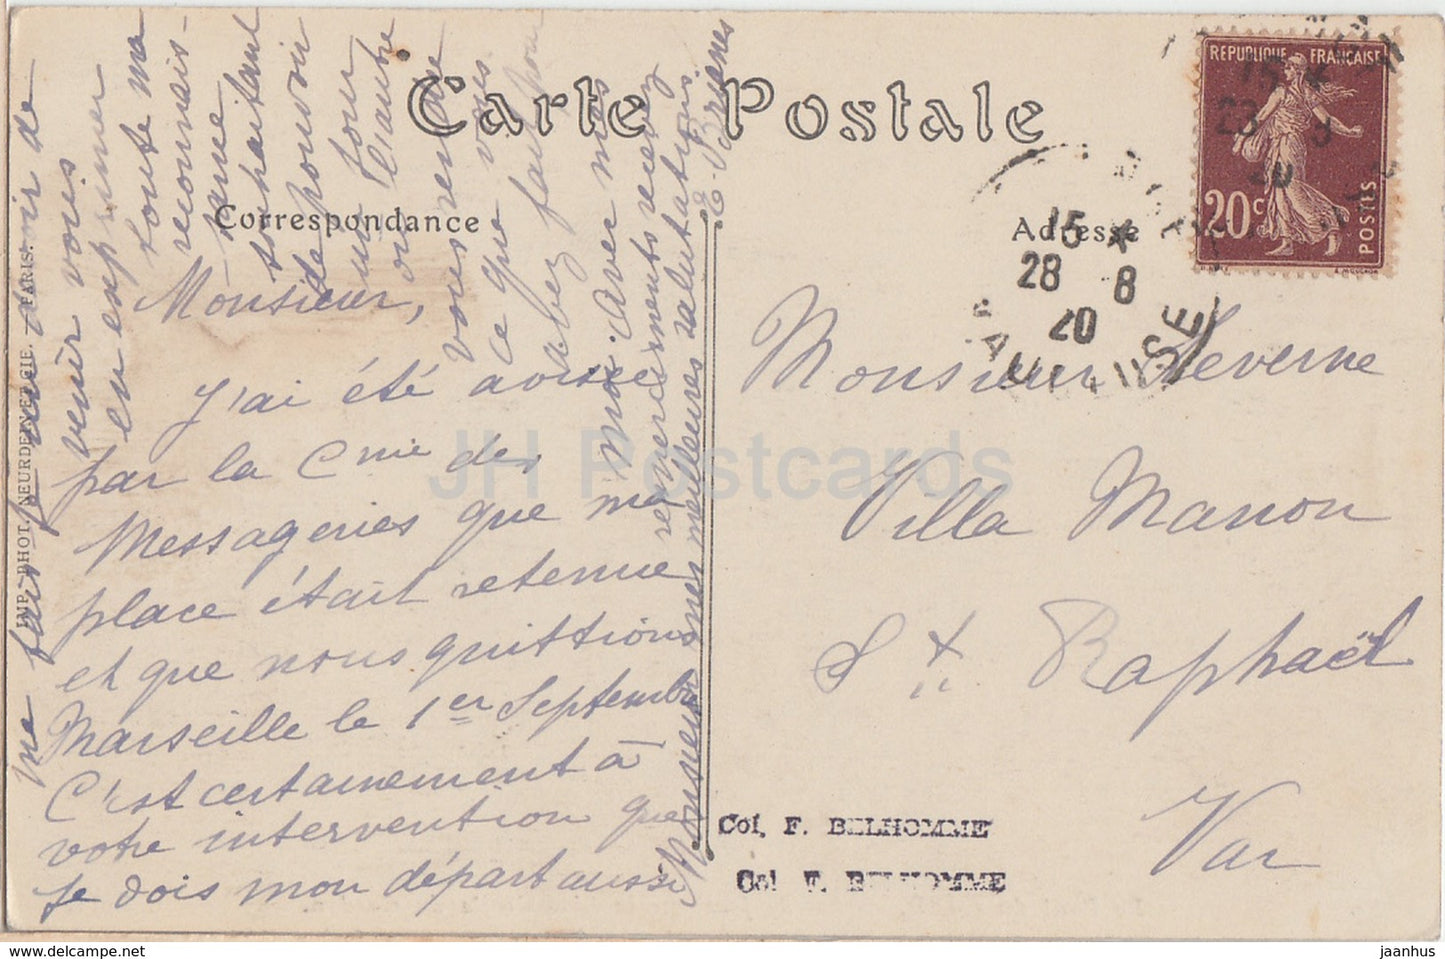 Carte Postale
Correspondance
Adresse
REPUBLIQUE FRANÇAISE
20c
POSTES
15 *
28 8
20
VAUCLUSE
Monsieur,
J'ai été avisée
par la Cnie des
Messageries que ma
place était retenue
et que nous quittions
Marseille le 1er Septembre
C'est certainement à
votre intervention que
je dois mon départ aussi
me fais
devoir de
venir vous
en exprimer
toute ma
reconnais-
sance
souhaitant
de pouvoir
un jour
ou l'autre
vous rendre
ce que vous
avez fait pour
moi. Avec mes
remerciements recevez
Monsieur mes meilleures salutations
Monsieur Leverne
Villa Manon
St Raphaël
Var
Col. F. BELHOMME
Col F. BELHOMME
IMP. PHOT. NEURDEIN ET CIE. — PARIS.
JH Postcards
www.delcampe.net
jaanhus